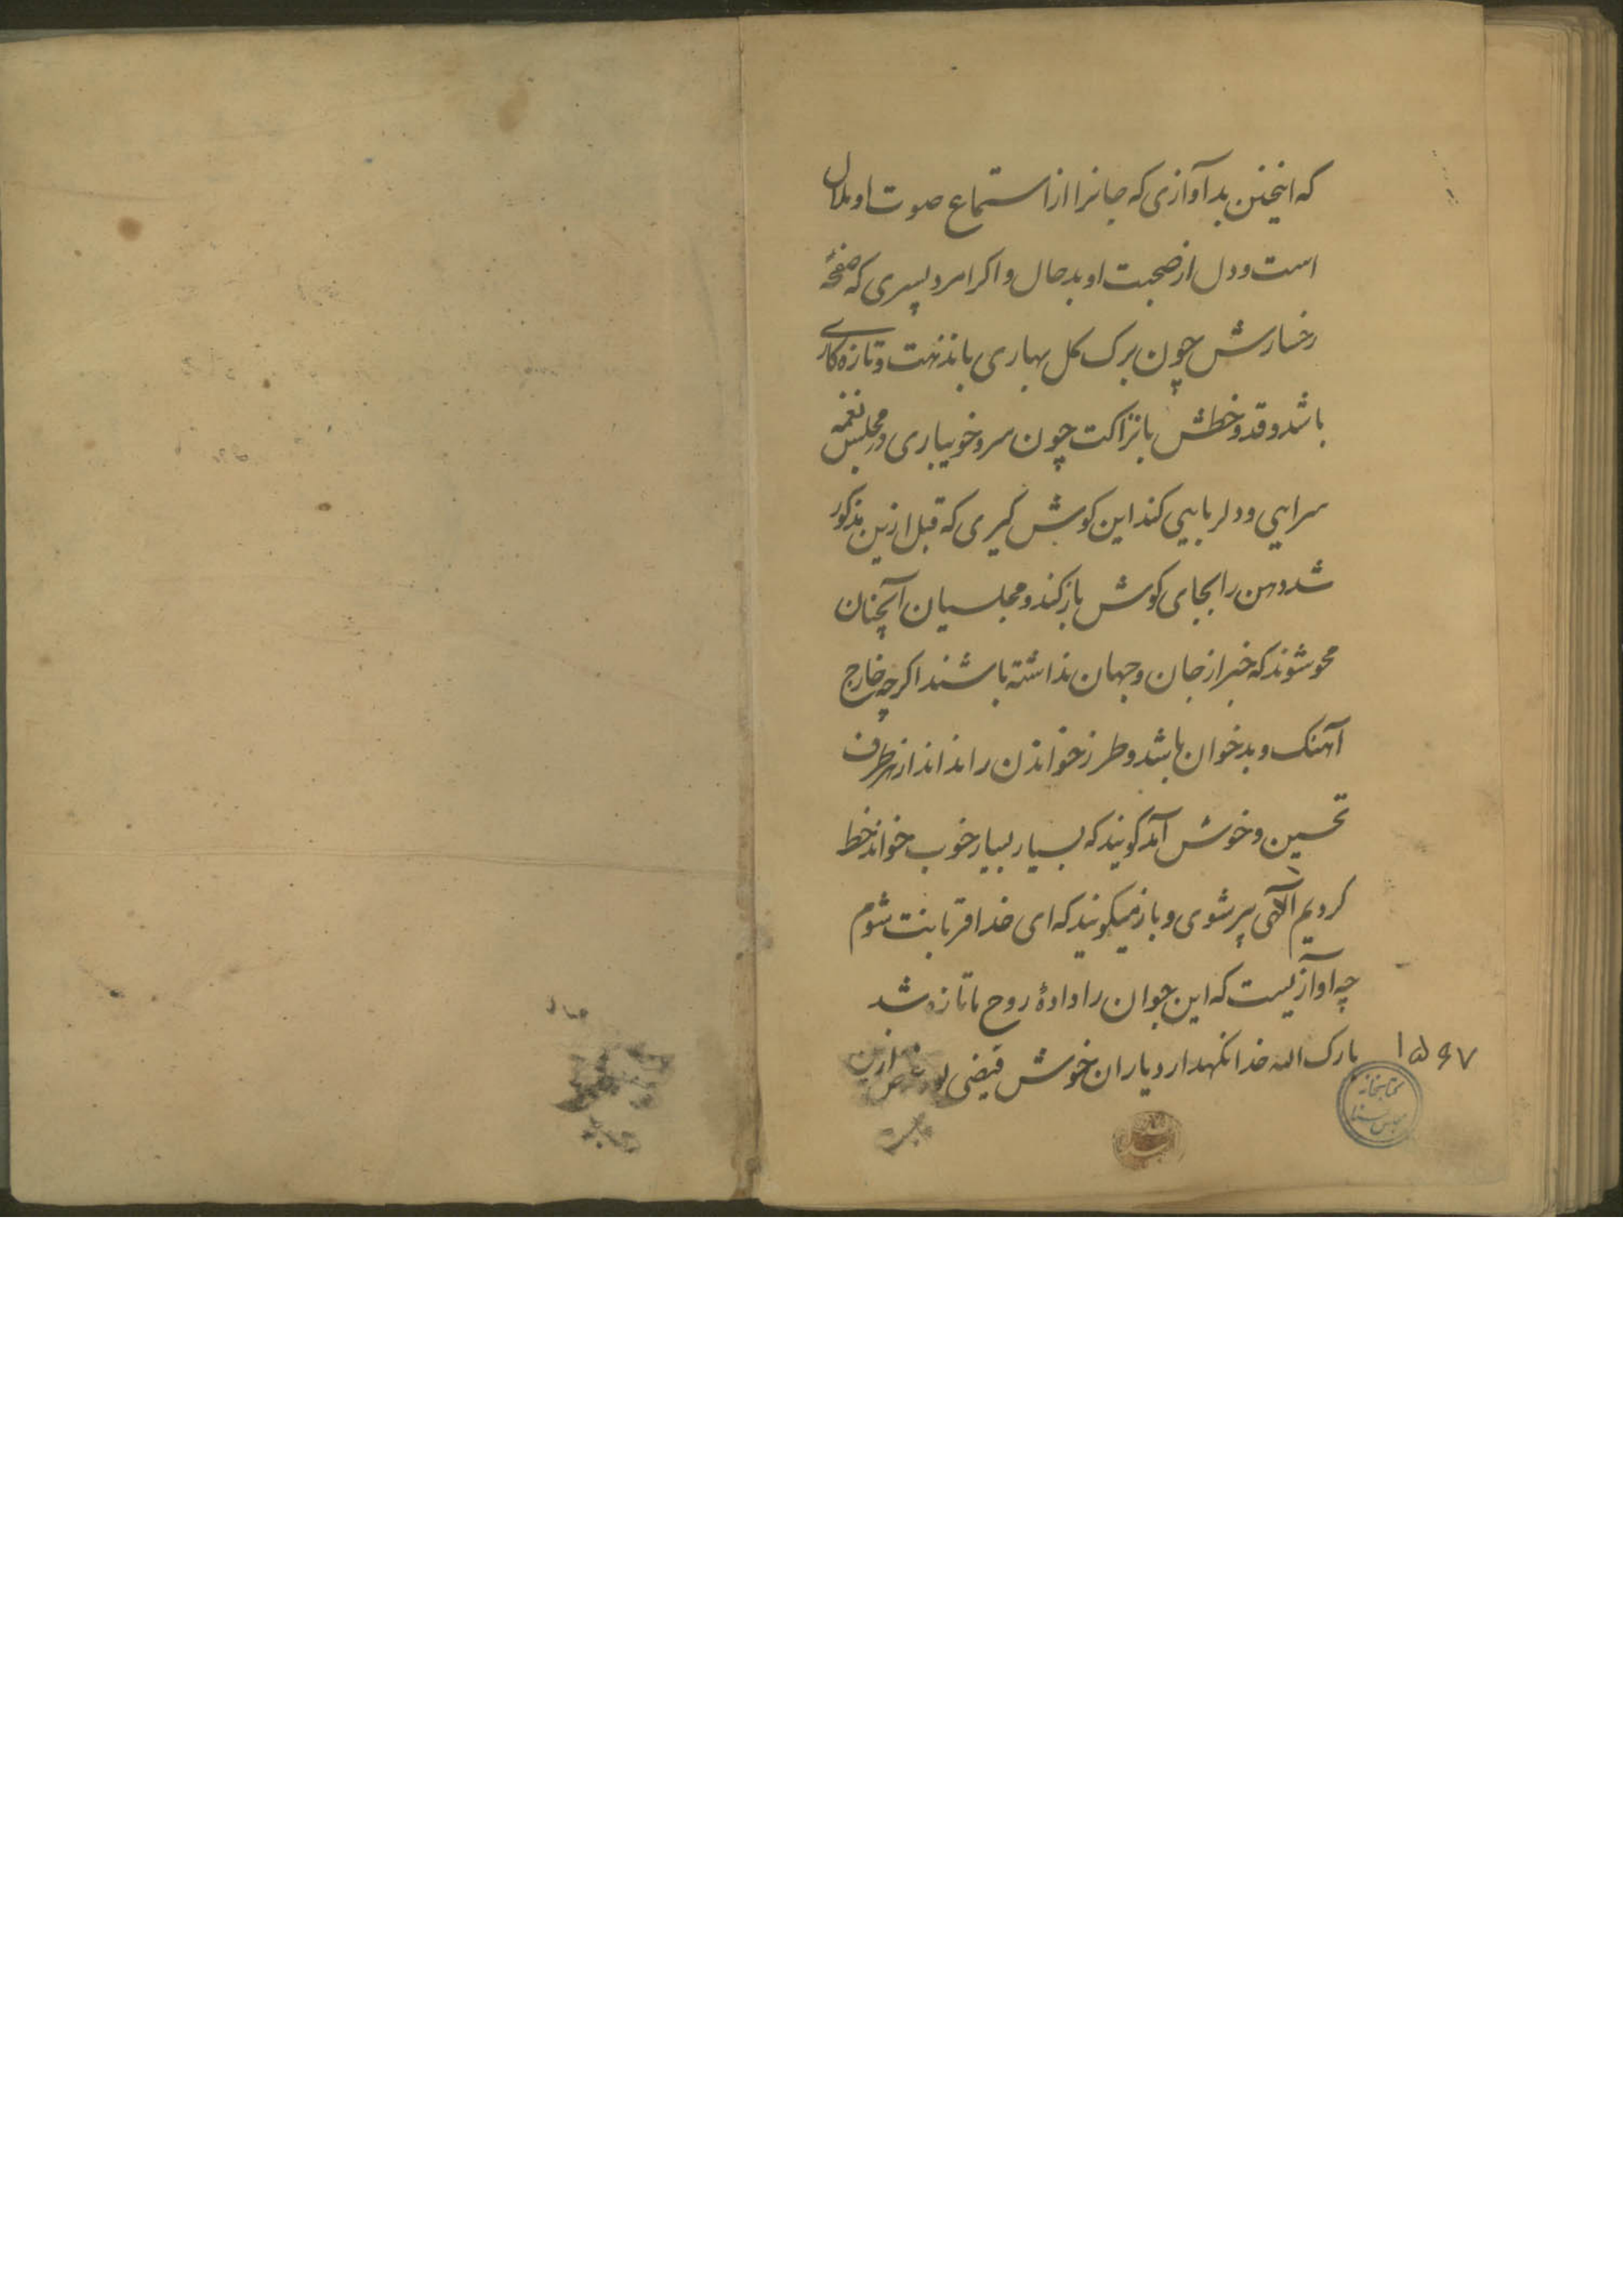 که اینچنین بد آوازی که جانرا از استماع صوت او ملال
است و دل از صحبت او بدحال و اکر امرد پسری که صفحهٔ
رخسارش چون برک کل بهاری با نزهت و تازه کاری
باشد و قد و خطش با نزاکت چون سرو خویباری در مجلس نغمه
سرایی و دلربایی کند این کوش کیری که قبل ازین مذکور
شد دهن را بجای کوش باز کند و مجلسیان آنچنان
محو شوند که خبر از جان و جهان نداشته باشند اکرچه خارج
آهنک و بدخوان باشد و طرز خواندن را نداند از هر طرف
تحسین و خوش آمد کویند که بسیار بسیار خوب خواند خط
کردیم آلهی پیر شوی و باز میکویند که ای خدا قربانت شوم
چه آوازیست که این جوان را دادهٔ روح ما تازه شد
بارک الله خدا نکهدارد یاران خوش فیضی بود غرض ازین
۱۵۶۷
کتابخانه
مجلس سنا